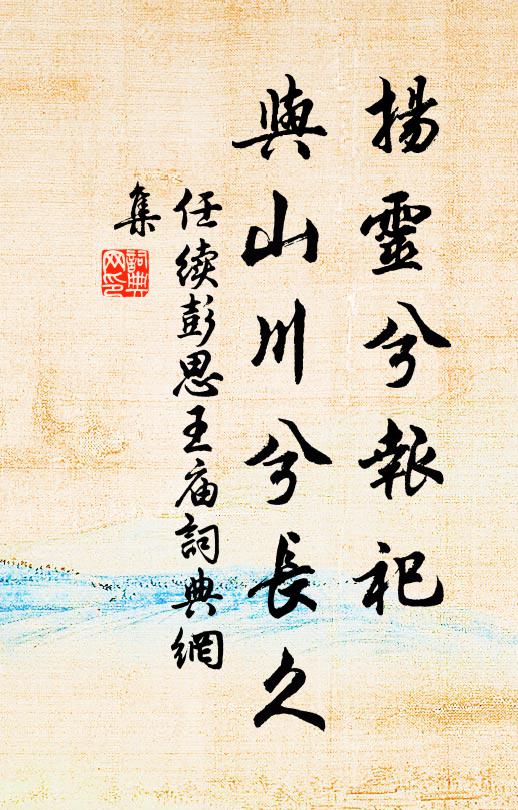 揚靈兮報祀
與山川兮長久
任续彭思王庙詞典網
集
詞典
网印